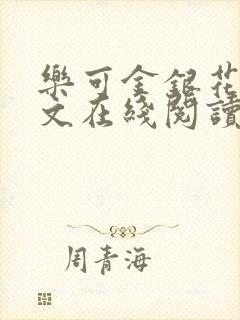 樂可金銀花
文在綫閱讀
周青海